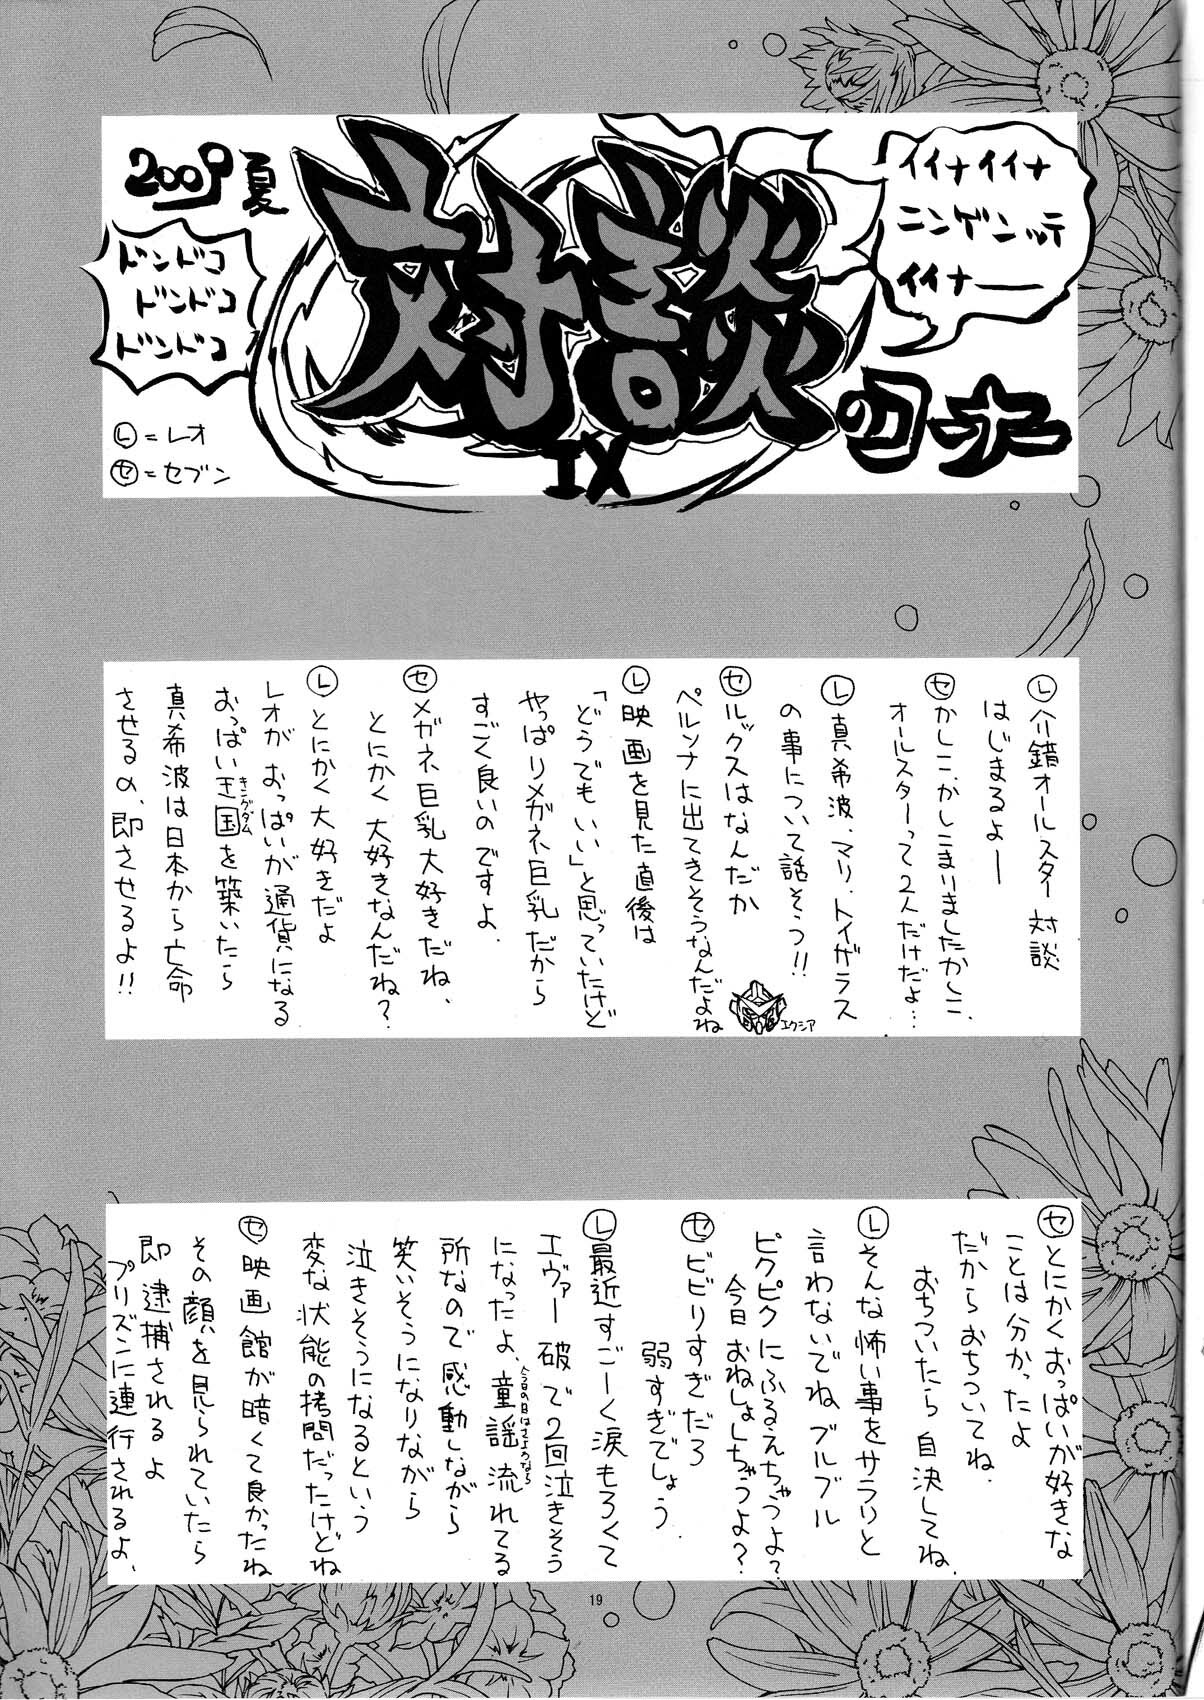 2009夏
対談
IX
のコーナー
イイナイイナ
ニンゲンッテ
イイナー
ドンドコ
ドンドコ
ドンドコ
Ⓛ=レオ
㋝=セブン
Ⓛ介錯オールスター対談
はじまるよー
㋝かしこ、かしこまりましたかしこ、
オールスターって2人だけだよ…
Ⓛ真希波、マリ、トイザラス
の事について話そう!!
㋝ルックスはなんだか
ペルソナに出てきそうなんだよね
エクシア
Ⓛ映画を見た直後は
「どうでもいい」と思っていたけど
やっぱりメガネ巨乳だから
すごく良いのですよ
㋝メガネ巨乳大好きだね、
とにかく大好きなんだね?
Ⓛとにかく大好きだよ
レオがおっぱいが通貨になる
おっぱい王国を築いたら
キングダム
真希波は日本から亡命
させるの、即させるよ!!
㋝とにかくおっぱいが好きな
ことは分かったよ
だからおちついてね、
おちついたら自決してね
Ⓛそんな怖い事をサラリと
言わないでねブルブル
ピクピクにふるえちゃうよ?
今日おねしょしちゃうよ?
㋝ビビりすぎだろ
弱すぎでしょう
Ⓛ最近すごーく涙もろくて
エヴァー破で2回泣きそう
になったよ、童謡流れてる
今日の日はさようなら
所なので感動しながら
笑いそうになりながら
泣きそうになるという
変な状態の拷問だったけどね
㋝映画館が暗くて良かったね
その顔を見られていたら
即逮捕されるよ
プリズンに連行されるよ、
19